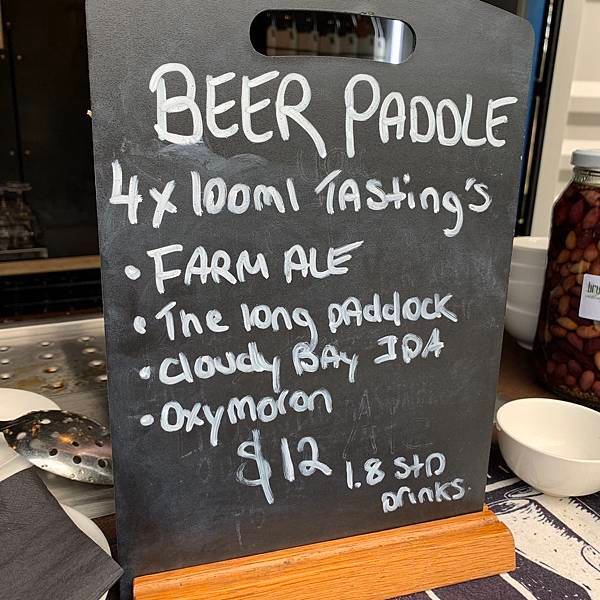 BEER PADDLE
4x 100ml TASting's
• FARM ALE
• The long pADDock
• Cloudy BAY IDA
• Oxymoron
$12
1.8 StD
Drinks.